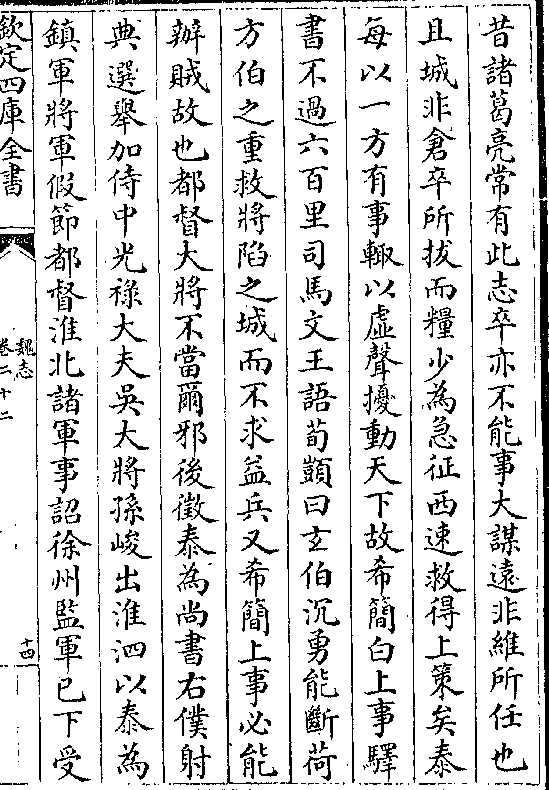 昔諸葛亮常有此志卒亦不能事大謀遠非維所任也
且城非倉卒所拔而糧少為急征西速救得上策矣泰
每以一方有事輙以虛聲擾動天下故希簡白上事驛
書不過六百里司馬文王語荀顗曰玄伯沉勇能斷荷
方伯之重救將陷之城而不求益兵又希簡上事必能
辦賊故也都督大將不當爾邪後徵泰為尚書右僕射
典選舉加侍中光祿大夫吳大將孫峻出淮泗以泰為
鎮軍將軍假節都督淮北諸軍事詔徐州監軍已下受
欽定四庫全書
魏志
卷二十二
十四